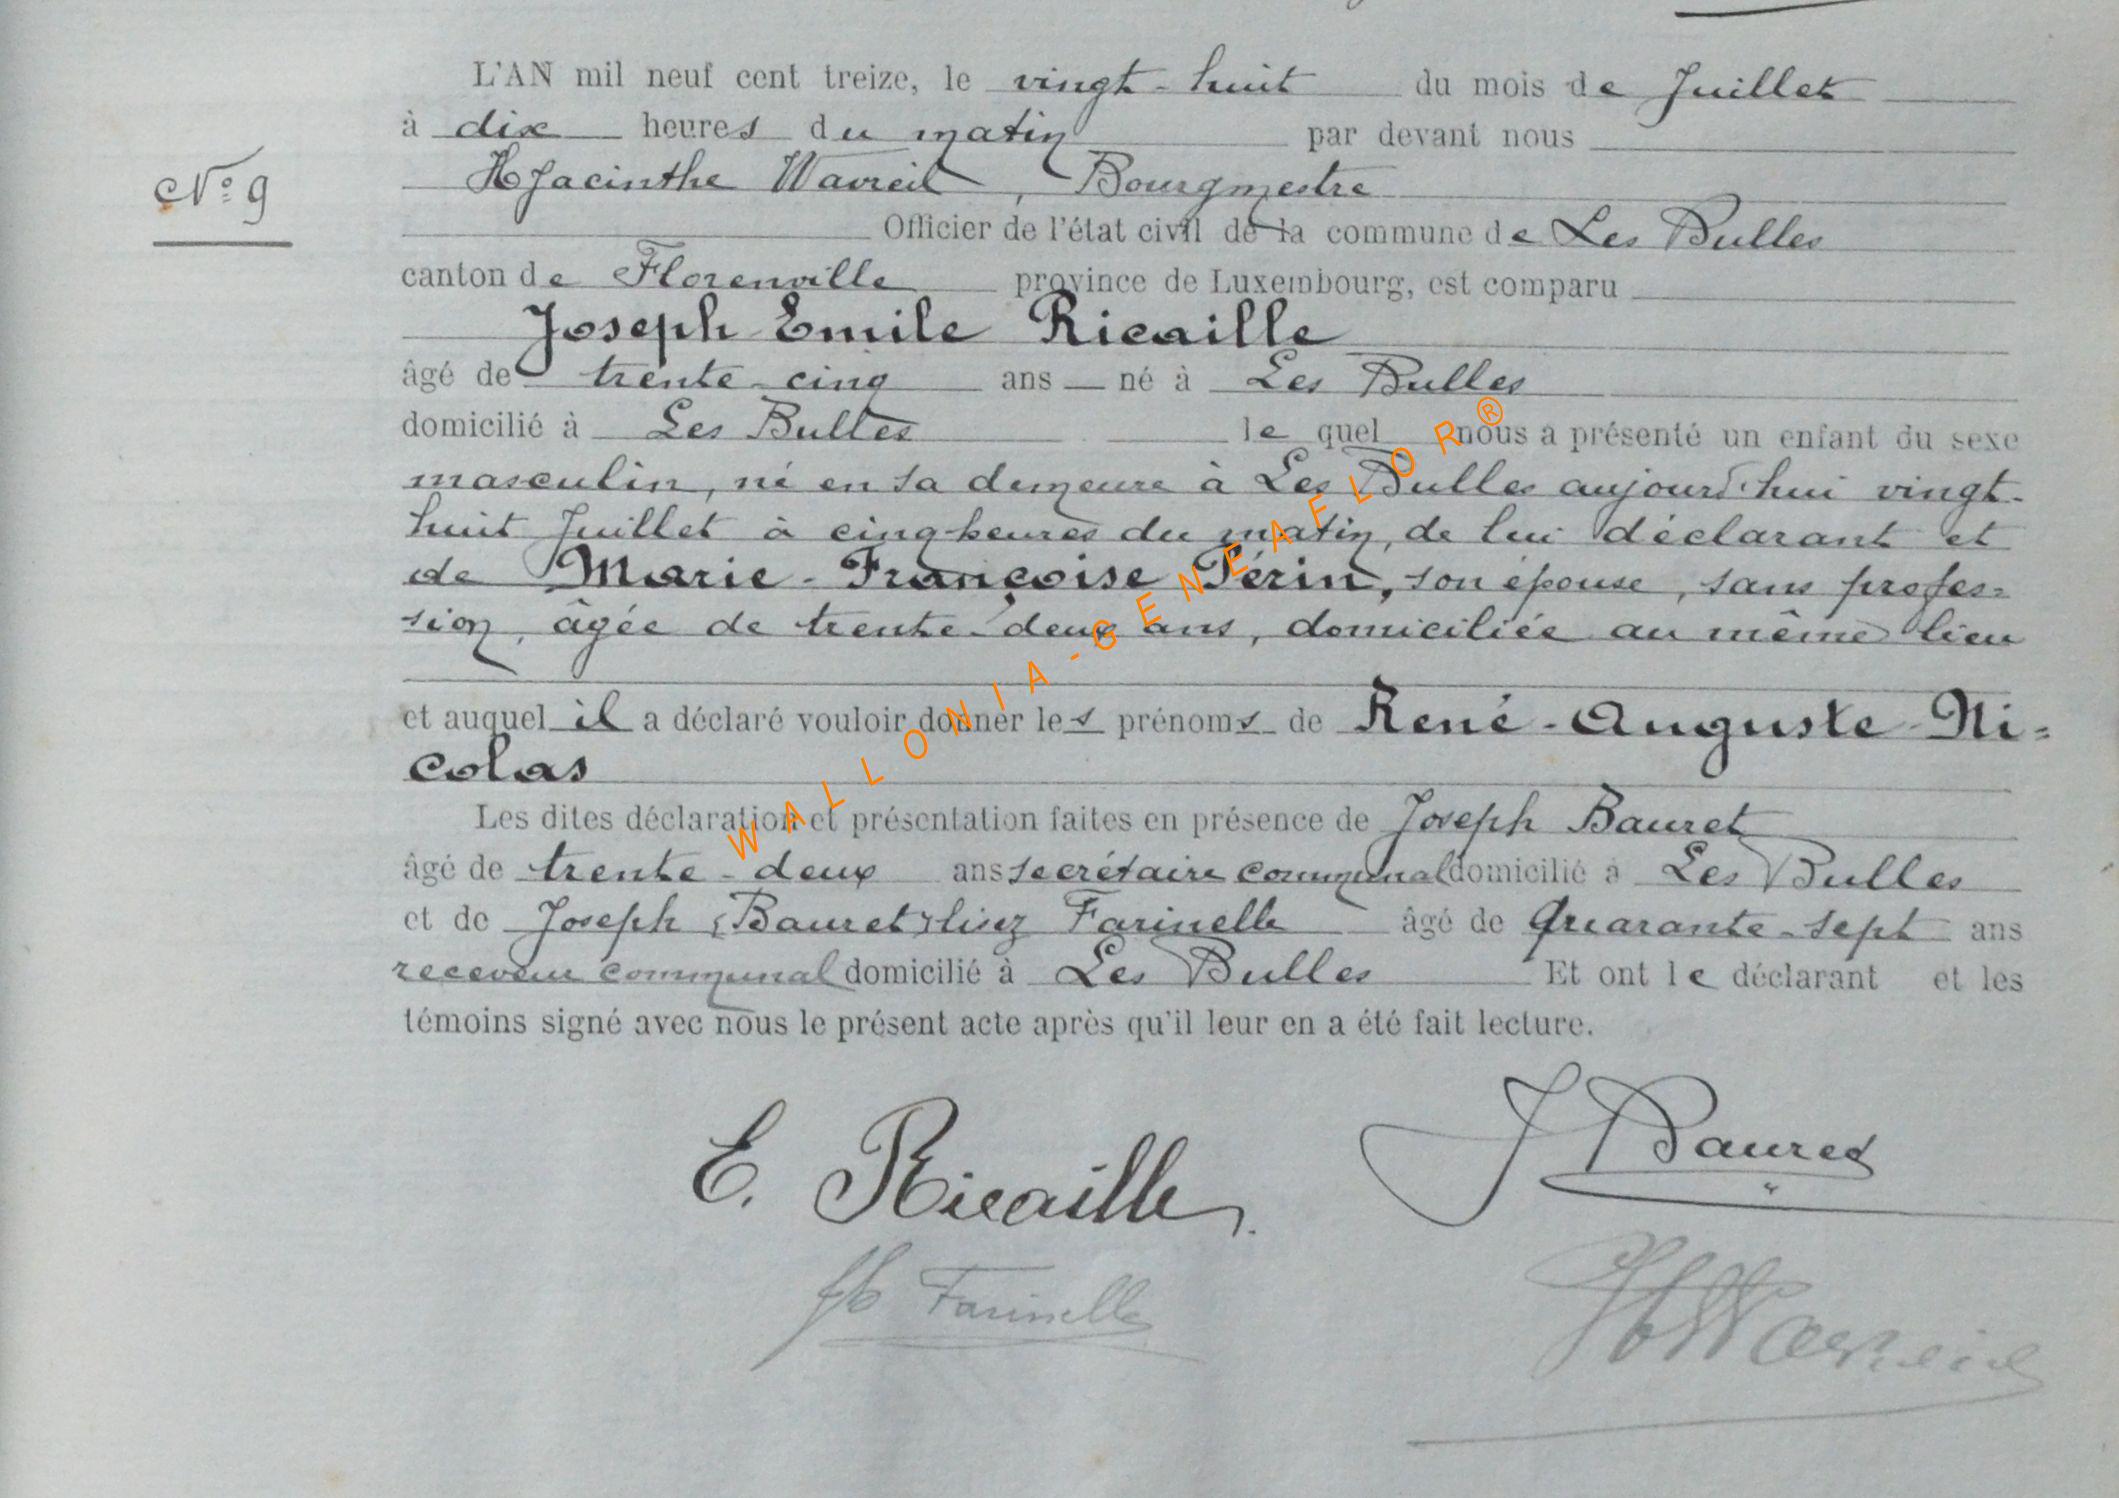 L'AN mil neuf cent treize, le vingt-huit du mois de Juillet
à dix heures du matin par devant nous
N° 9
Hyacinthe Wavreil, Bourgmestre
Officier de l'état civil de la commune de Les Bulles
canton de Florenville province de Luxembourg, est comparu
Joseph Emile Ricaille
âgé de trente-cinq ans né à Les Bulles
domicilié à Les Bulles le quel nous a présenté un enfant du sexe
masculin, né en sa demeure à Les Bulles aujourd'hui vingt-
huit Juillet à cinq heures du matin, de lui déclarant et
de Marie-Françoise Périn, son épouse, sans profes=
sion, âgée de trente-deux ans, domiciliée au même lieu
et auquel il a déclaré vouloir donner les prénoms de René-Auguste-Ni=
colas
Les dites déclaration et présentation faites en présence de Joseph Bauret
âgé de trente-deux ans secrétaire communal domicilié à Les Bulles
et de Joseph (Bauret) lisez Farinelle âgé de quarante-sept ans
receveur communal domicilié à Les Bulles Et ont le déclarant et les
témoins signé avec nous le présent acte après qu'il leur en a été fait lecture.
E. Ricaille
J Bauret
Farinelle
H Wavreil
WALLONIA-GENEAFLOR®